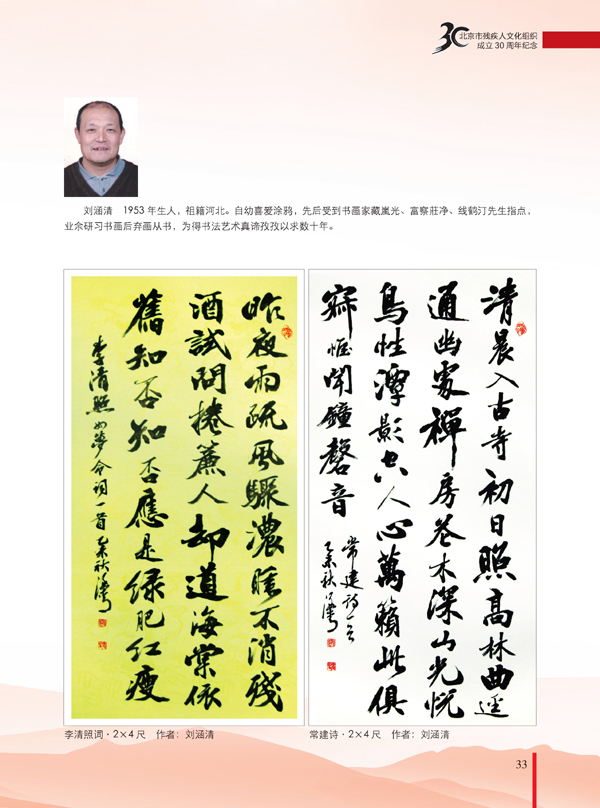 30
北京市残疾人文化组织
成立 30 周年纪念
刘涵清 1953 年生人，祖籍河北。自幼喜爱涂鸦，先后受到书画家藏嵐光、富察莊净、线鹤汀先生指点，
业余研习书画后弃画从书，为得书法艺术真谛孜孜以求数十年。
昨夜雨疏風驟濃睡不消殘
酒試問捲簾人却道海棠依
舊知否知否應是绿肥红瘦
李清照如夢令詞一首 乙未秋涵清
清晨入古寺初日照高林曲逕
通幽處禪房花木深山光悦
鳥性潭影空人心萬籟此俱
寂惟聞鐘磬音
常建詩一首
乙未秋涵清
李清照词·2×4 尺 作者：刘涵清
常建诗·2×4 尺 作者：刘涵清
33